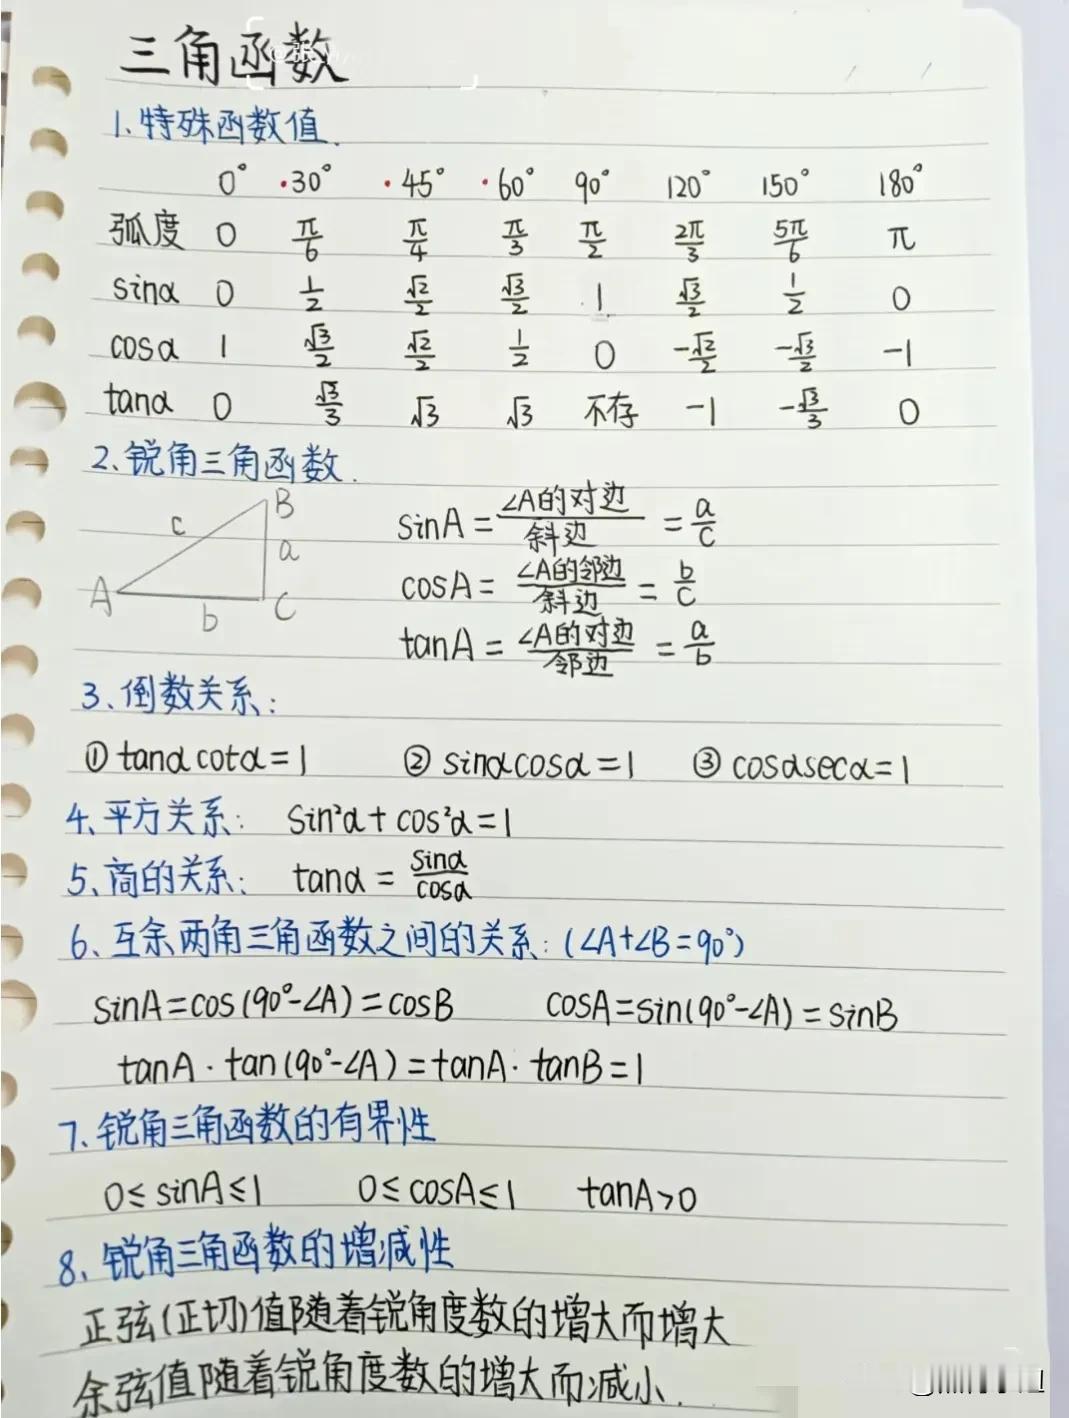 三角函数
1、特殊函数值.
0° ·30° ·45° ·60° 90° 120° 150° 180°
弧度 0 π/6 π/4 π/3 π/2 2π/3 5π/6 π
sinα 0 1/2 √2/2 √3/2 1 √3/2 1/2 0
cosα 1 √3/2 √2/2 1/2 0 -√2/2 -√3/2 -1
tanα 0 √3/3 √3 √3 不存 -1 -√3/3 0
2、锐角三角函数.
A B C a b c
sinA = ∠A的对边/斜边 = a/c
cosA = ∠A的邻边/斜边 = b/c
tanA = ∠A的对边/邻边 = a/b
3、倒数关系：
① tanαcotα=1 ② sinαcosα=1 ③ cosαsecα=1
4、平方关系： sin²α+cos²α=1
5、商的关系： tanα = sinα/cosα
6、互余两角三角函数之间的关系：(∠A+∠B=90°)
sinA=cos(90°-∠A)=cosB cosA=sin(90°-∠A)=sinB
tanA·tan(90°-∠A)=tanA·tanB=1
7、锐角三角函数的有界性
0≤sinA≤1 0≤cosA≤1 tanA>0
8、锐角三角函数的增减性
正弦(正切)值随着锐角度数的增大而增大
余弦值随着锐角度数的增大而减小.